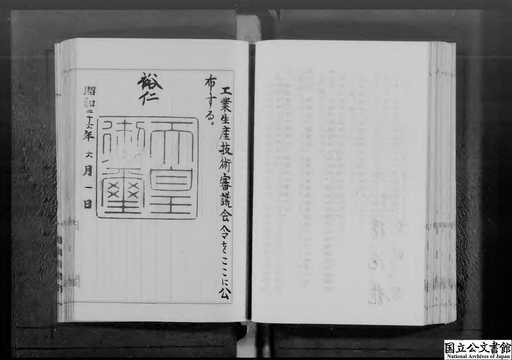 工業生産技術審議会令をここに公
布する。
裕仁
天皇
御璽
昭和二十六年六月一日
国立公文書館
National Archives of Japan